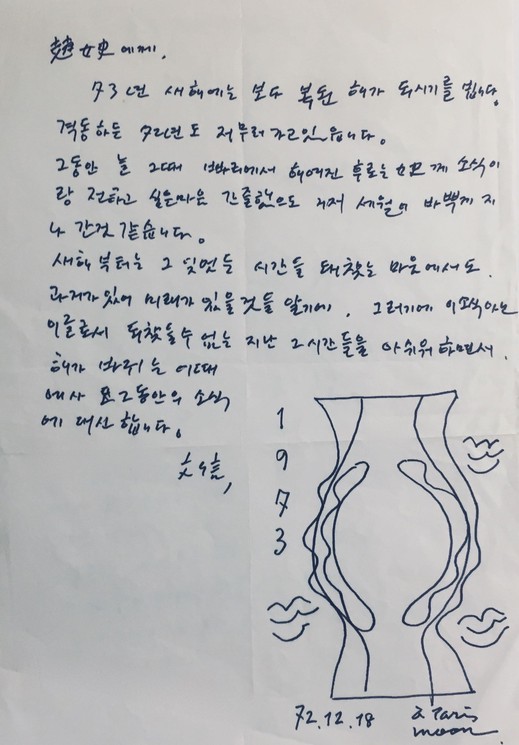 趙女史에게.
73년 새해에는 보다 복된 해가 되시기를 빕니다.
격동하든 72년도 저무러가고있읍니다.
그동안 늘 그때 빠리에서 헤여진 후로는 女史께 소식이
랑 전하고 싶은마음 간줄했으도 그저 세월이 바쁘게 지
나 간것 같습니다.
새해부터는 그 잊었든 시간들 되찾는 마음에서도.
과거가있어 미래가 있을것들 알기에. 그러기에 이소식아는
이들로서 되찾을수 없는 지난 그시간들을 아쉬워 하면서.
해가 바뀌는 이때
에사 그동안의 소식
에 대신합니다.
文信,
1
9
7
3
72.12.18
à Paris
moon.